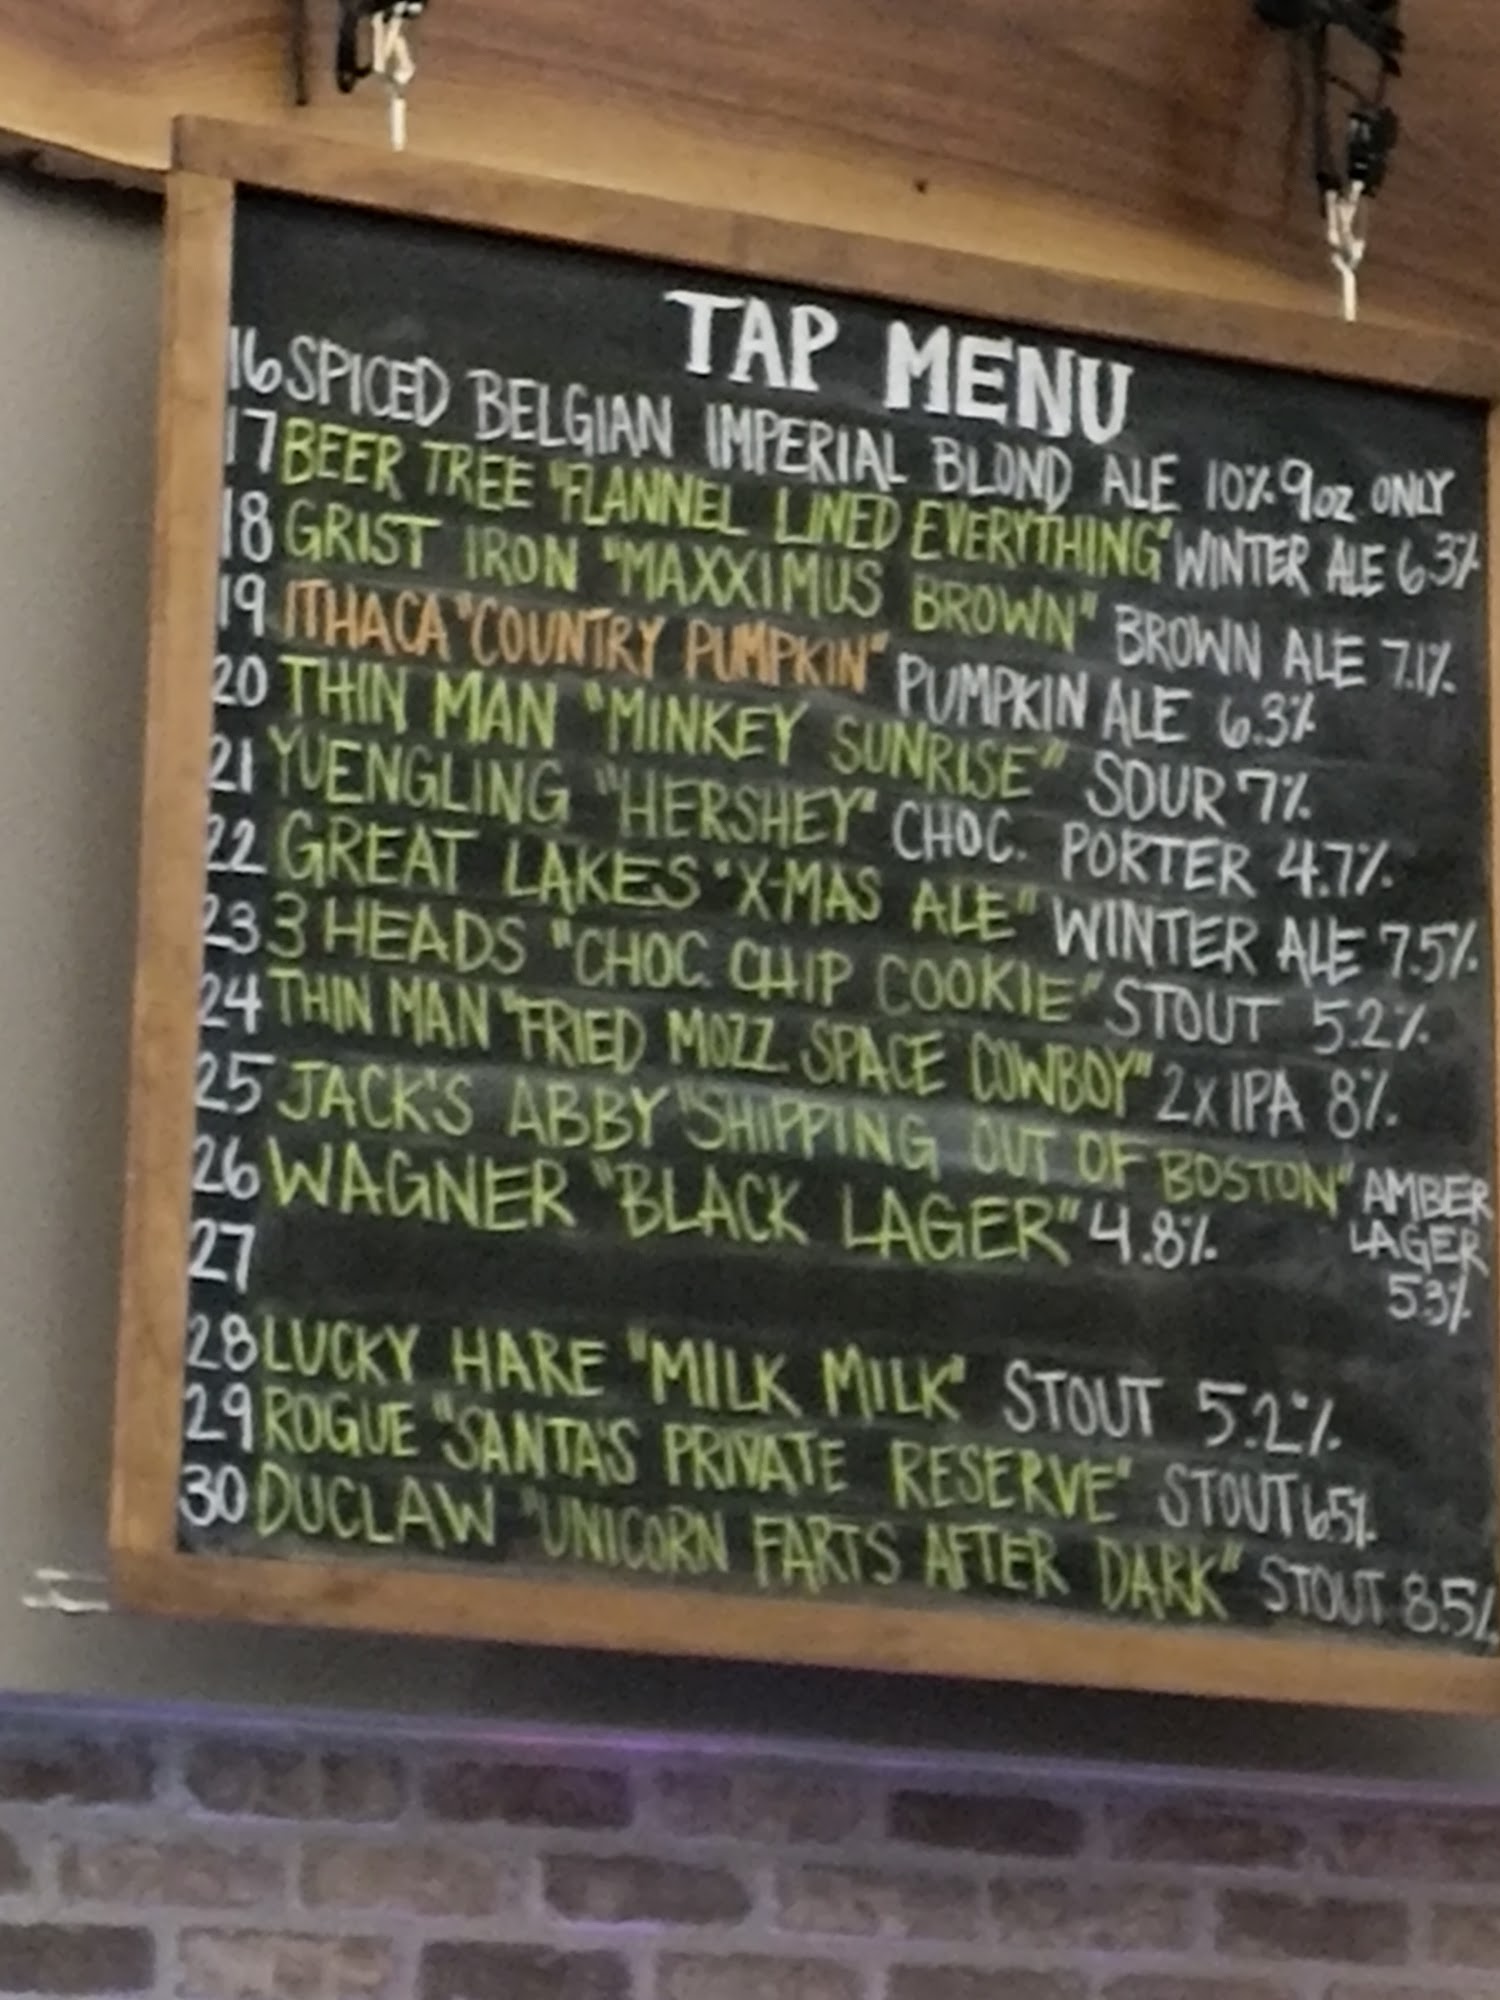 TAP MENU
16 SPICED BELGIAN IMPERIAL BLOND ALE 10% 9oz ONLY
17 BEER TREE "FLANNEL LINED EVERYTHING" WINTER ALE 6.3%
18 GRIST IRON "MAXXIMUS BROWN" BROWN ALE 7.1%
19 ITHACA "COUNTRY PUMPKIN" PUMPKIN ALE 6.3%
20 THIN MAN "MINKEY SUNRISE" SOUR 7%
21 YUENGLING "HERSHEY" CHOC. PORTER 4.7%
22 GREAT LAKES "X-MAS ALE" WINTER ALE 7.5%
23 3 HEADS "CHOC. CHIP COOKIE" STOUT 5.2%
24 THIN MAN "FRIED MOZZ SPACE COWBOY" 2x IPA 8%
25 JACK'S ABBY "SHIPPING OUT OF BOSTON" AMBER
LAGER
5.3%
26 WAGNER "BLACK LAGER" 4.8%
27
28 LUCKY HARE "MILK MILK" STOUT 5.2%
29 ROGUE "SANTA'S PRIVATE RESERVE" STOUT 6.5%
30 DUCLAW "UNICORN FARTS AFTER DARK" STOUT 8.5%